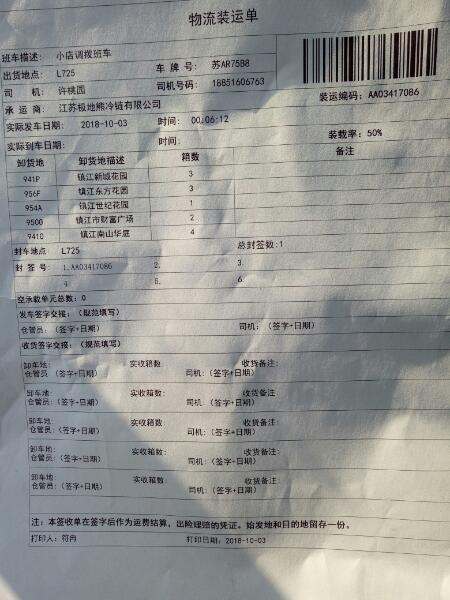 物流装运单
班车描述: 小店调拨班车
出货地点: L725 车 牌 号: 苏AR75B8
司 机: 许桃园 司机号码: 18851606763
承 运 商: 江苏极地熊冷链有限公司 装运编码: AA03417086
实际发车日期: 2018-10-03 时间: 00:06:12
实际到车日期: 时间: 装载率: 50%
卸货地 卸货地描述 箱数 备注
941P 镇江新城花园 3
956F 镇江东方花园 3
954A 镇江世纪花园 1
9500 镇江市财富广场 2
9410 镇江南山华庭 4
封车地点 L725 总封签数:1
封 签 号: 1.AA03417086 2. 3.
4. 5. 6.
空承载单元总数: 0
发车签字交接: (规范填写)
仓管员: (签字+日期) 司机: (签字+日期)
收货签字交接: (规范填写)
卸车地: 实收箱数: 收货备注:
仓管员: (签字+日期) 司机: (签字+日期)
卸车地: 实收箱数: 收货备注:
仓管员: (签字+日期) 司机: (签字+日期)
卸车地: 实收箱数: 收货备注:
仓管员: (签字+日期) 司机: (签字+日期)
卸车地: 实收箱数: 收货备注:
仓管员: (签字+日期) 司机: (签字+日期)
卸车地: 实收箱数: 收货备注:
仓管员: (签字+日期) 司机: (签字+日期)
注: 本签收单在签字后作为运费结算, 出险理赔的凭证。始发地和目的地留存一份。
打印人: 符冉 打印日期: 2018-10-03